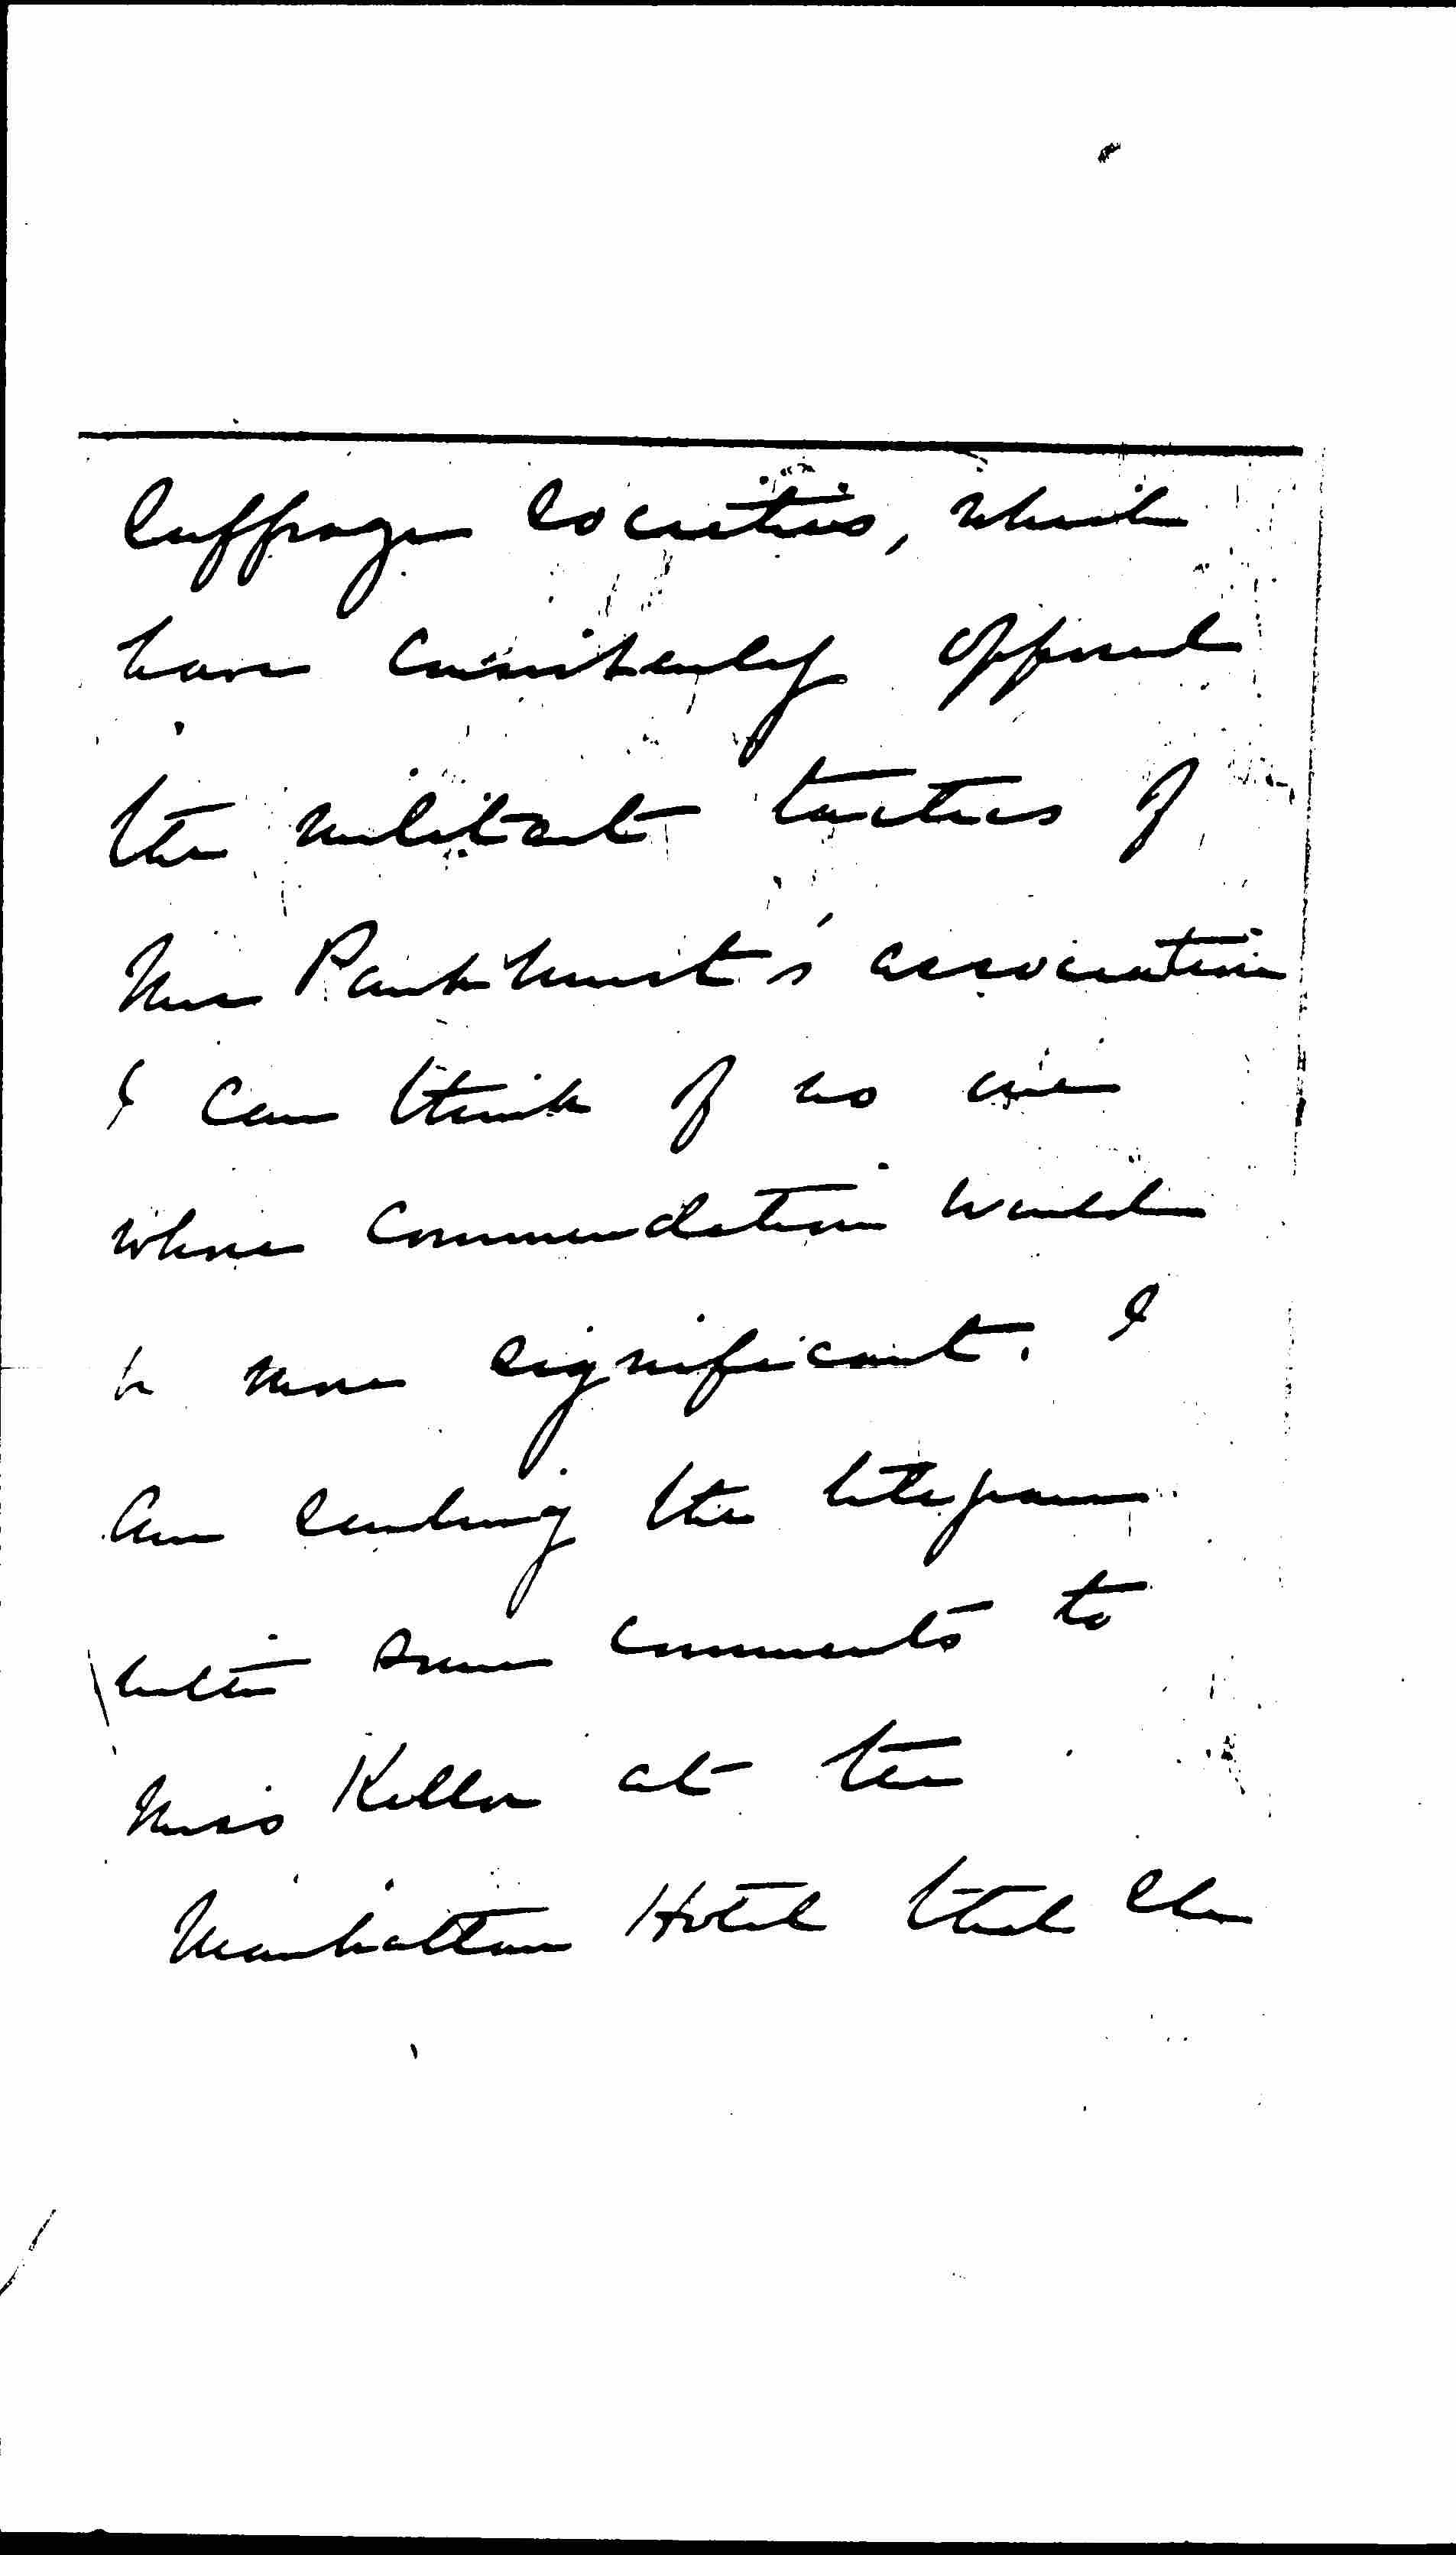 Suffrage Societies, which
have consistently opposed
the militant tactics of
Mrs Pankhurst's association
I can think of no one
whose commendation would
be more significant. I
am sending the telegram
with some comments to
Miss Keller at the
Manhattan Hotel that she